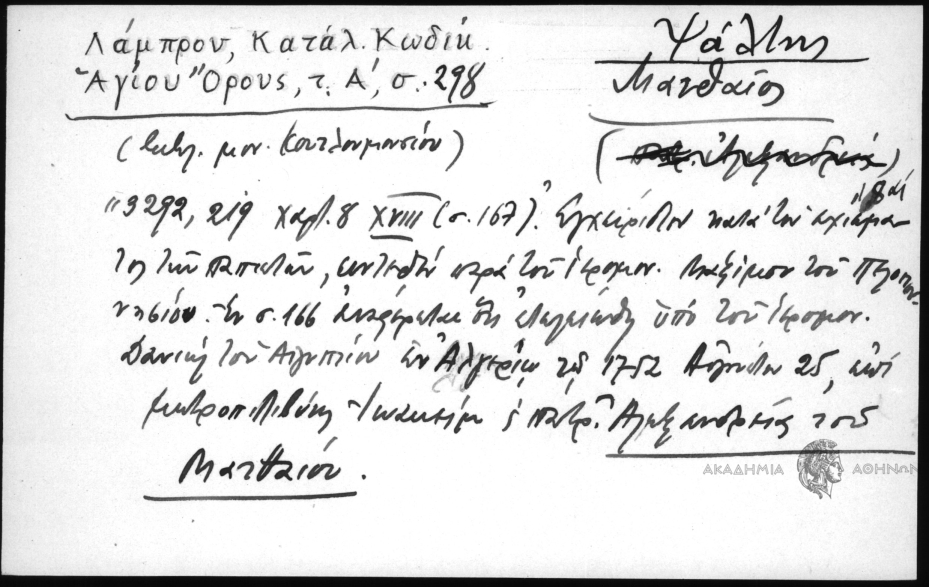 Λάμπρου, Κατάλ. Κωδίκ.
Ἁγίου Ὄρους, τ. Α', σ. 298
Ψάλτης
Ματθαῖος
(Βιβλ. μον. Κουτλουμουσίου)
(πατρ. Ἀλεξανδρείας)
"3292, 219 χαρτ. 8 XVIII (σ. 167). Ἐγχειρίδιον κατὰ τοῦ σχίσμα-
τος τῶν παπιστῶν, συντεθὲν παρὰ τοῦ ἱερομον. Μαξίμου τοῦ Πελοπον-
νησίου. Ἐν σ. 166 ἀναφέρεται ὅτι ὑπὸ τοῦ ἱερομον.
Δανιὴλ τοῦ Αἰγυπτίου ἐν Ἀλγερίῳ τῷ 1752 Αὐγούστου 25, ἐπὶ
μητροπολίτου Ἰωακεὶμ πατρ. Ἀλεξανδρείας τοῦ
Ματθαίου.
ΑΚΑΔΗΜΙΑ ΑΘΗΝΩΝ